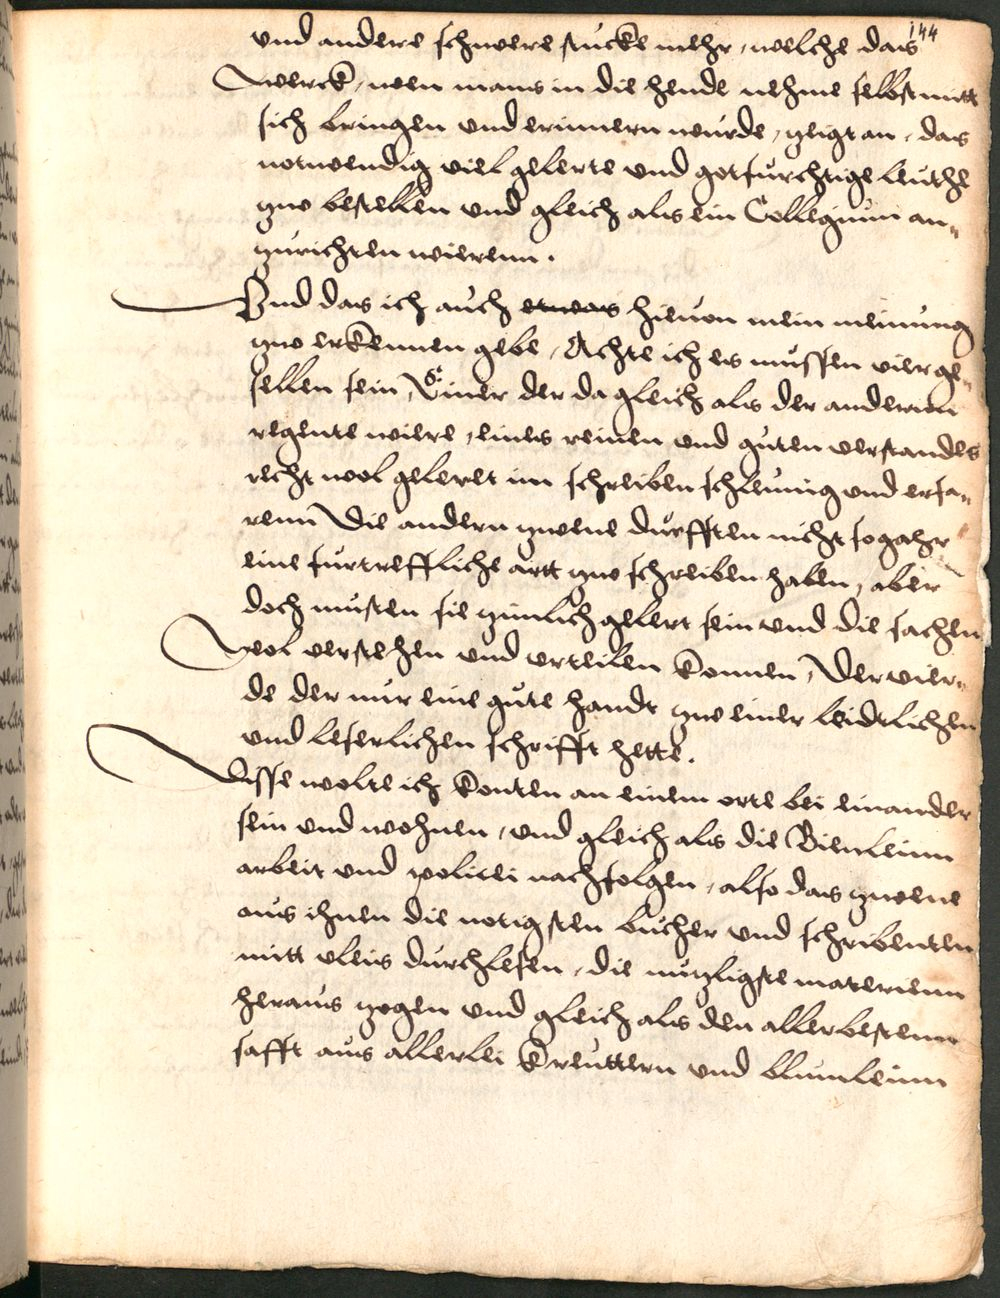 144
vnd andere schwere stucke mehr, welche das
werck, wen mans in die hende nehme selbst mitt
sich bringen vnd erinnern wurde, zeigt an, das
notwendig viel gelerte vnd gotfurchtige leuthe
zwo bestellen vnd gleich als ein Collegium an„
zurichten wierenn.
Vnd das ich auch etwas hieuon mein meinung
zwo erkennen gebe, Achte ich es mussen vier ge„
sellen sein, Einer der da gleich als der anderen
regente wiere, eines reinen vnd guten verstandes
recht wol geleret im schreiben schleunig vnd erfa„
renn Die andern zwene durfften nicht so gahr
eine furtreffliche artt zwo schreiben haben, aber
doch musten sie zimlich gelert sein vnd die sachen
wol verstehen vnd vrteilen konnen, Der vier„
de der nur eine gute handt zwo einer leidtlichen
vnd leserlichen schrifft hette.
Disse wolte ich konten an einem orte bei einander
sein vnd wohnen, vnd gleich als die Bienleinn
arbeit vnd politei nachfolgen, also das zwene
aus ihnen die notigsten bucher vnd schribenten
mitt vleis durchlesen, die nutzligste materienn
heraus zogen vnd gleich als den allerbestenn
safft aus allerlei Kreuttern vnd blumleinn